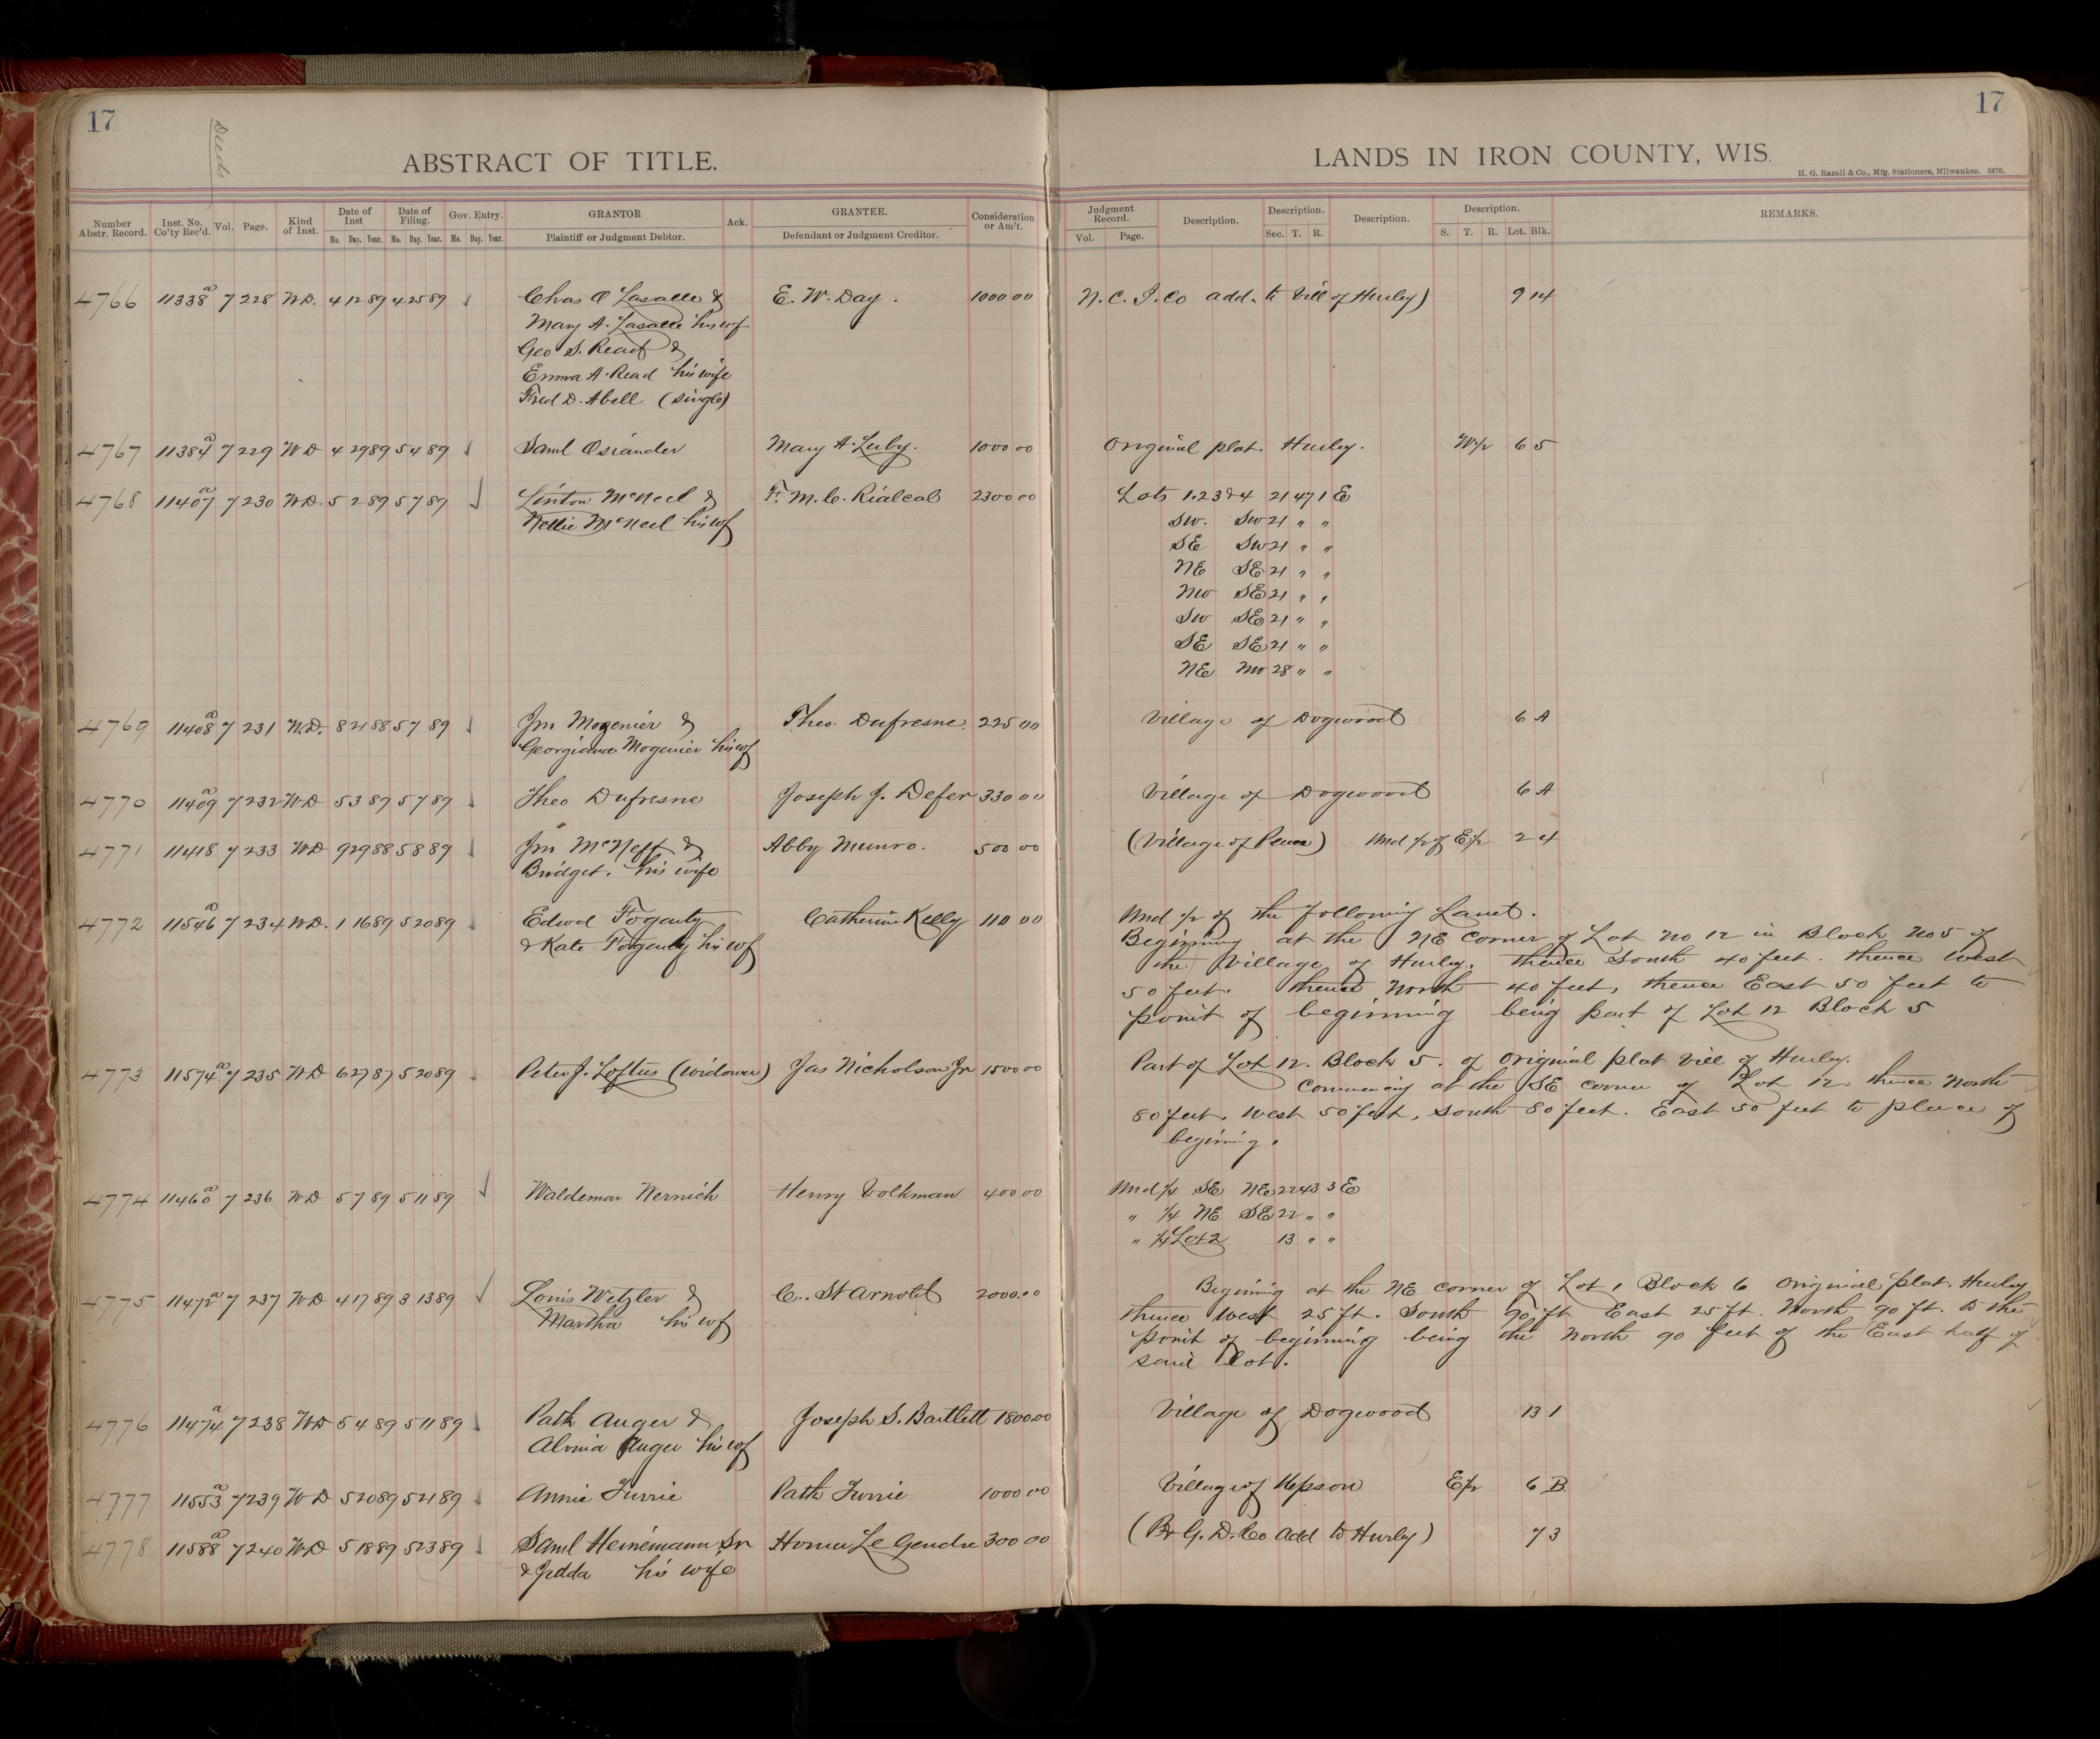 17
Deeds
ABSTRACT OF TITLE.
Number Abstr. Record. Inst. No. Co'ty Rec'd. Vol. Page. Kind of Inst. Date of Inst Mo. Day. Year. Date of Filing. Mo. Day. Year. Gov. Entry. Mo. Day. Year. GRANTOR Plaintiff or Judgment Debtor. Ack. GRANTEE. Defendant or Judgment Creditor. Consideration or Am't.
4766 11338 a 7 228 W.D. 4 12 89 4 25 89 Chas O Lasalle & E. W. Day. 1000 00
Mary A. Lasalle his wf
Geo S. Read &
Emma A. Read his wife
Fred D. Abell (single)
4767 11384 a 7 229 W D 4 29 89 5 4 89 Saml Osiander Mary A. Luby. 1000 00
4768 11407 a 7 230 W.D. 5 2 89 5 7 89 Linton McNeel & F. M. C. 2300 00
Nellie McNeel his wf
4769 11408 a 7 231 W.D. 8 21 88 5 7 89 Jno Mogenier & Theo. Dufresne. 225 00
Georgiana Mogenier his wf
4770 11409 a 7 232 W D 5 3 89 5 7 89 Theo Dufresne Joseph J. Defer 330 00
4771 11418 7 233 W D 9 29 88 5 8 89 Jno McNeff & Abby Munro. 500 00
Bridget. his wife
4772 11546 a 7 234 W D. 1 16 89 5 20 89 Edwd Fogarty Catherin Kelly 110 00
& Kate Fogarty his wf
4773 11574 a 7 235 W D 6 27 87 5 20 89 Peter J. Loftus (widower) Jas Nicholson Jr 1500 00
4774 11460 a 7 236 W D 5 7 89 5 11 89 Waldemar Wernich Henry Volkman 400 00
4775 11472 a 7 237 W D 4 17 89 3 13 89 Louis Wetzler & C. St Arnold 2000.00
Martha his wf
4776 11474 a 7 238 W D 5 4 89 5 11 89 Path Auger & Joseph S. Bartlett 1800.00
Alvina Auger his wf
4777 11553 a 7 239 W D 5 20 89 5 21 89 Annie Furrie Path Furrie 1000 00
4778 11588 a 7 240 W D 5 18 89 5 23 89 Saml Heinemann Sr Homer Le Gendre 300 00
& Jedda his wife
17
LANDS IN IRON COUNTY, WIS.
H. G. Razall & Co., Mfg. Stationers, Milwaukee. 5876.
Judgment Record. Vol. Page. Description. Description. Sec. T. R. Description. Description. S. T. R. Lot. Blk. REMARKS.
N. C. I. Co add. to Vill of Hurley) 9 14
Original plat. Hurley. W½ 6 5
Lots 1.2 3 & 4 21 47 1 E
SW. SW 21 " "
SE SW 21 " "
NE SE 21 " "
NW SE 21 " "
SW SE 21 " "
SE SE 21 " "
NE NW 28 " "
Village of Dogwood 6 A
Village of Dogwood 6 A
(Village of Pence) Und ½ of E½ 2 4
Und ½ of the following Land.
Beginning at the NE corner of Lot No 12 in Block No 5 of
the Village of Hurley. thence South 40 feet. thence West
50 feet. thence North 40 feet, thence East 50 feet to
point of beginning being part of Lot 12 Block 5
Part of Lot 12. Block 5. of Original plat Vill of Hurley.
Commencing at the SE corner of Lot 12 thence North
80 feet. West 50 feet, South 80 feet. East 50 feet to place of
begining.
Und ¼ SE NE 22 43 3 E
" ¼ NE SE 22 " "
" ¼ Lot 2 13 " "
Beginning at the NE corner of Lot 1 Block 6 Original plat. Hurley
thence West 25 ft. South 90 ft East 25 ft. North 90 ft. to the
point of beginning being the North 90 feet of the East half of
said Lot.
Village of Dogwood 13 1
Village of Upson E½ 6 B.
(B & G. D. Co add to Hurley) 7 3